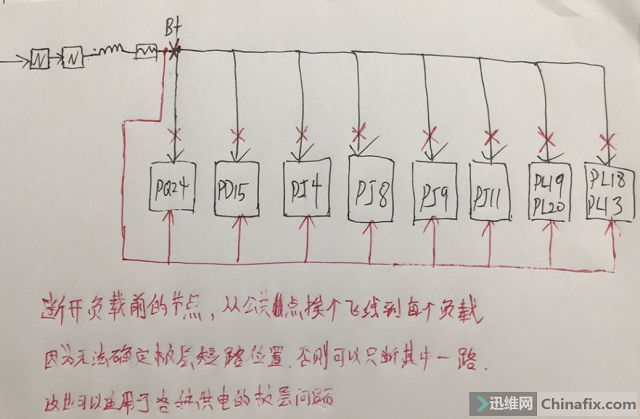 B+
N N
PQ24 PD15 PJ4 PJ8 PJ9 PJ11 PL19 PL18
PL20 PL13
断开负载前的节点，从公共点挨个飞线到每个负载
因为无法确定板层短路位置.否则可以只断其中一路.
这也可以适用于各种供电的板层问题
迅维网 Chinafix.com